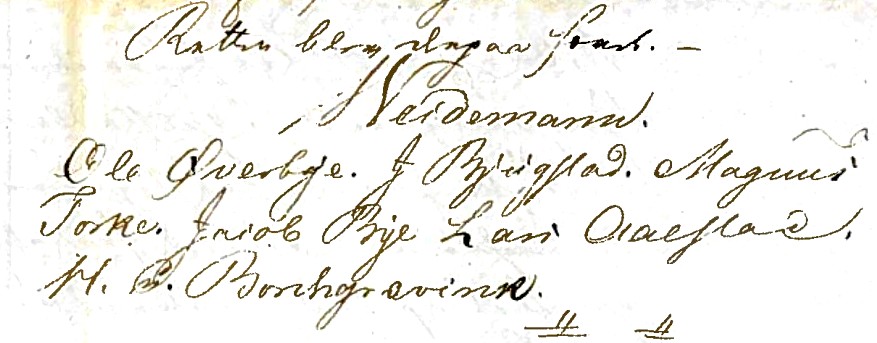 Retten blev derpaa hævet. –
Weidemann.
Ole Øverbye. J Bjugstad. Magnus
Torke. Jacob Bye Lars Aalstad.
H. C. Borchgrevink.